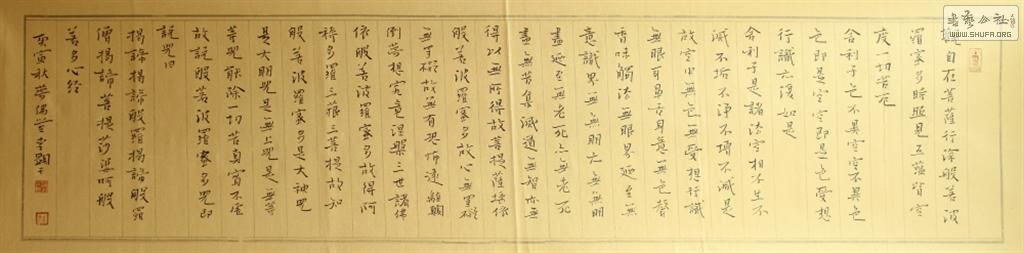 觀自在菩薩行深般若波
羅蜜多時照見五蘊皆空
度一切苦厄
舍利子色不異空空不異色
色即是空空即是色受想
行識亦復如是
舍利子是諸法空相不生不
滅不垢不淨不增不減是
故空中無色無受想行識
無眼耳鼻舌身意無色聲
香味觸法無眼界乃至無
意識界無無明亦無無明
盡乃至無老死亦無老死
盡無苦集滅道無智亦無
得以無所得故菩提薩埵依
般若波羅蜜多故心無罣礙
無罣礙故無有恐怖遠離顛
倒夢想究竟涅槃三世諸佛
依般若波羅蜜多故得阿
耨多羅三藐三菩提故知
般若波羅蜜多是大神咒
是大明咒是無上咒是無等
等咒能除一切苦真實不虛
故說般若波羅蜜多咒即
說咒曰
揭諦揭諦般羅揭諦般羅
僧揭諦菩提莎婆呵般
若多心經
庚寅秋
書藝公社
WWW.SHUFA.ORG